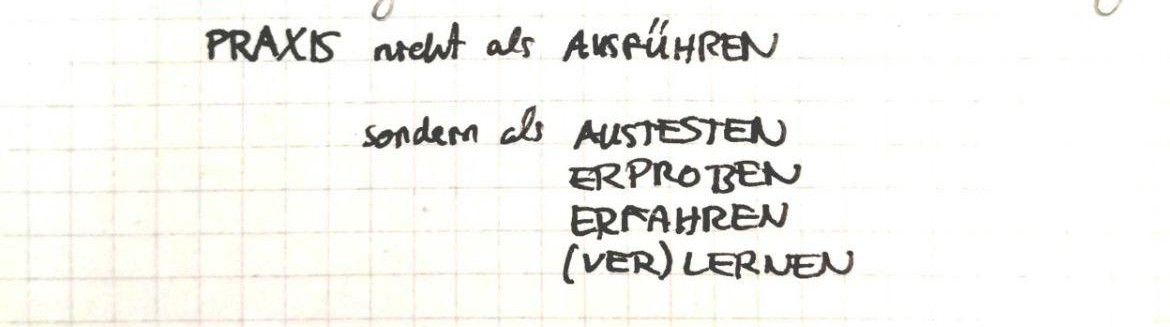 PRAXIS nicht als AUSFÜHREN
sondern als AUSTESTEN
ERPROBEN
ERFAHREN
(VER)LERNEN